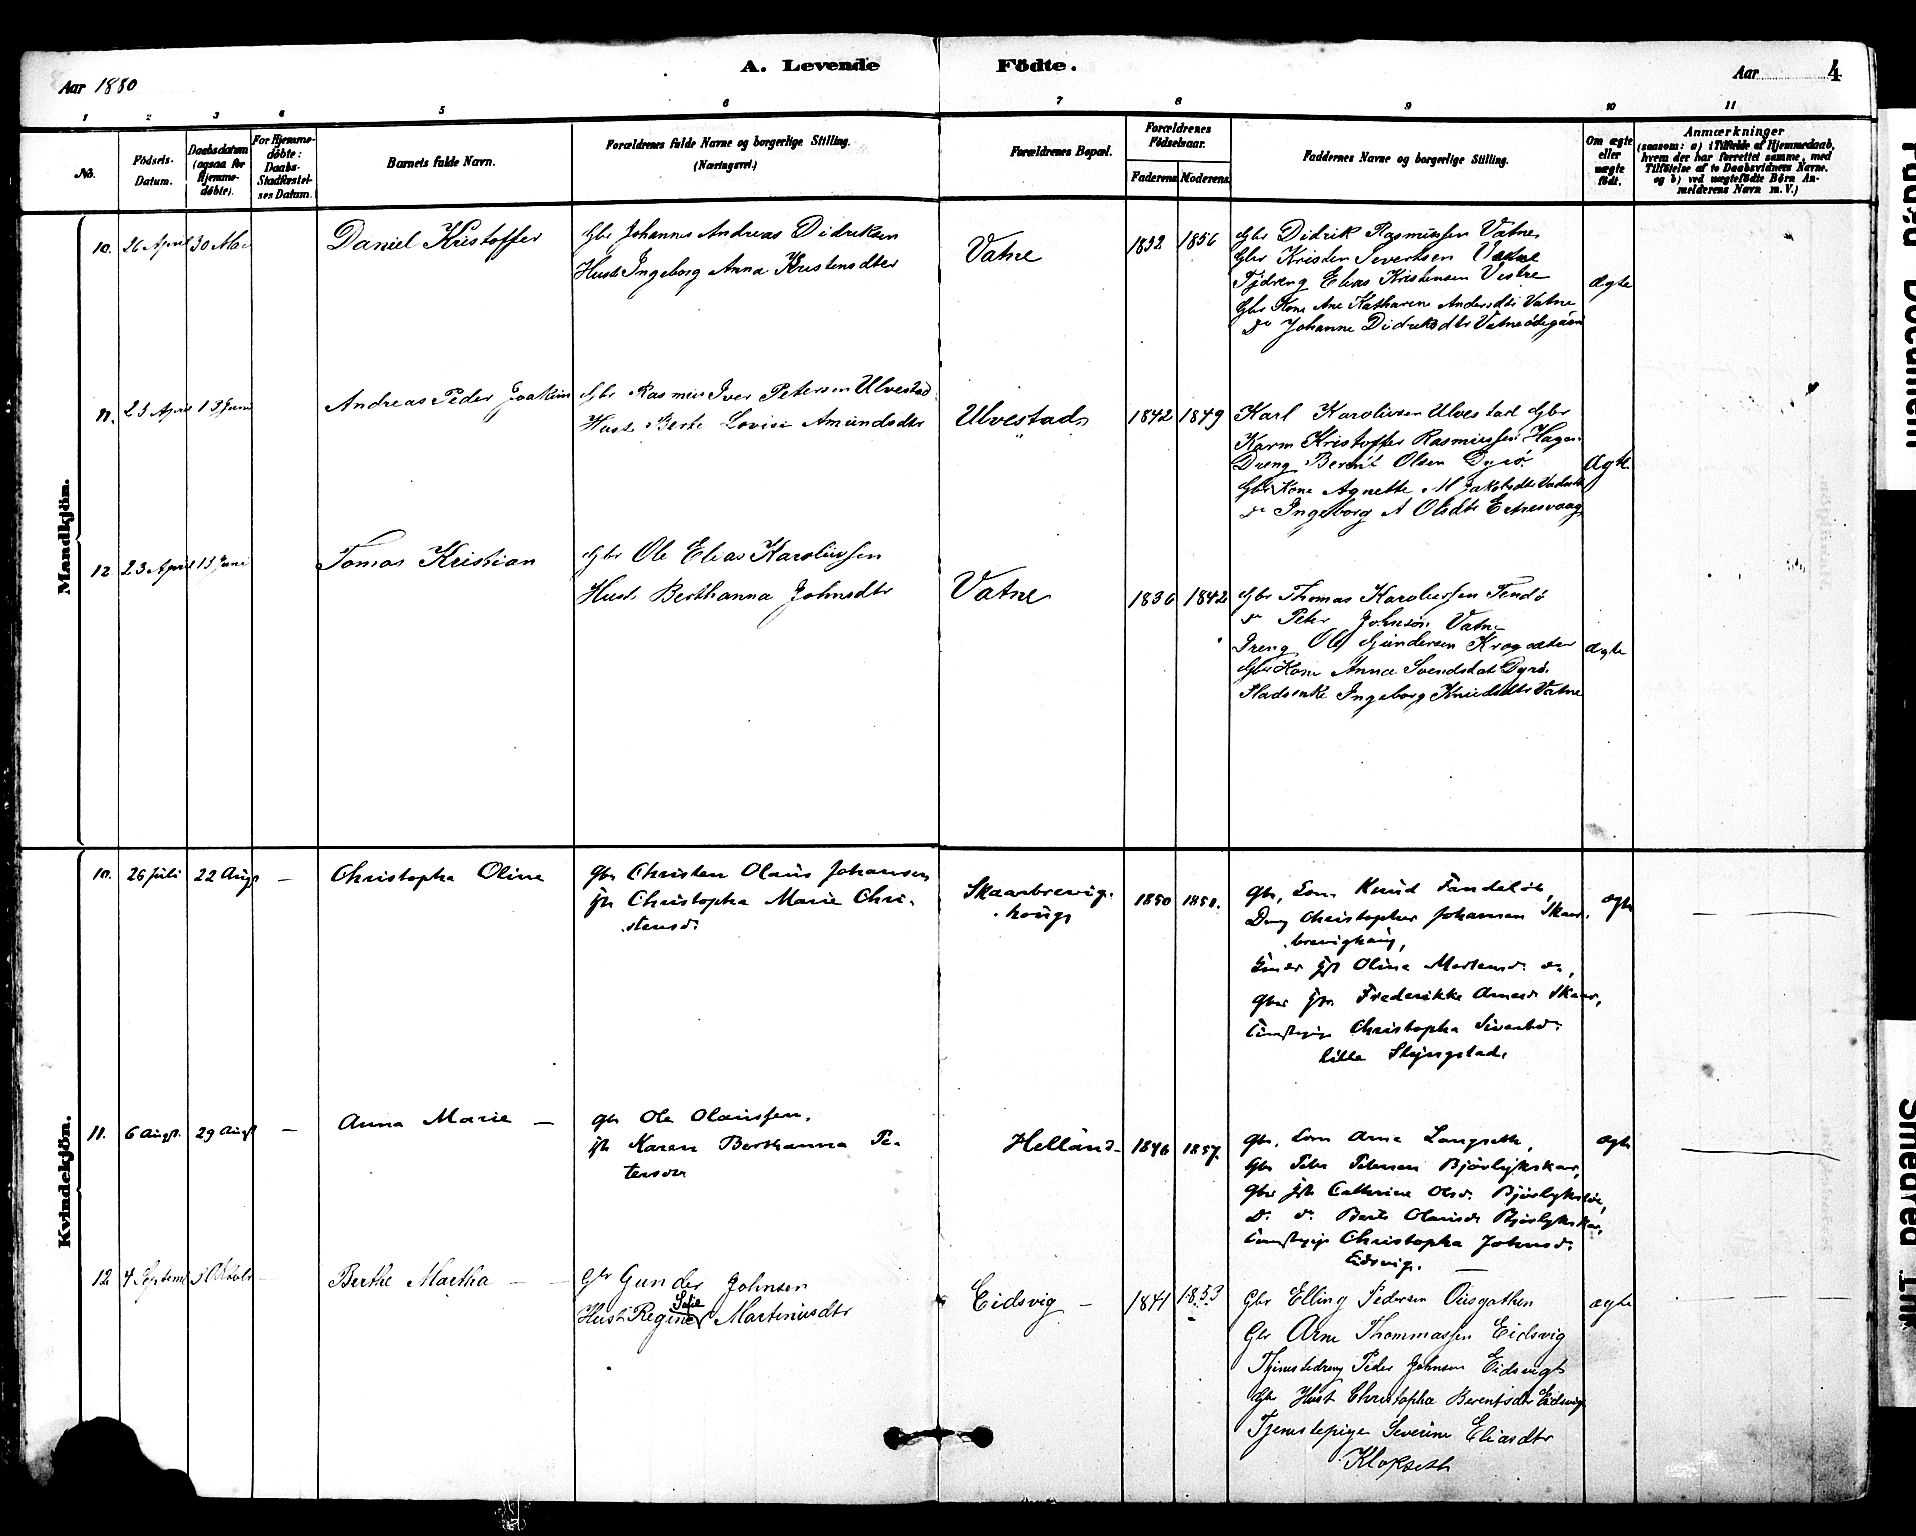 Aar 1880
A. Levende Födte.
Aar 4
1 2 3 4 5 6 7 8 9 10 11
No.
Födsels-Datum.
Daabsdatum (ogsaa for Hjemme-döbte).
For Hjemme-döbte: Daabs-Stadfæstel-ses Datum.
Barnets fulde Navn.
Forældrenes fulde Navne og borgerlige Stilling. (Næringsvei.)
Forældrenes Bopæl.
Forældrenes Födselsaar.
Faderens Moderens
Faddernes Navne og borgerlige Stilling.
Om ægte eller uægte födt.
Anmærkninger
(saasom: a) i Tilfælde af Hjemmedaab,
hvem der har forrettet samme, med
Tilföielse af to Daabsvidners Navne.
og b) ved uægtefödte Börn An-
melderens Navn m. V.)
Mandkjön.
10. 26 April 30 Mai
Daniel Kristoffer
Gbr Johannes Andreas Didriksen
Hust Ingeborg Anna Kristensdtr
Vatne
1832 1856
Gbr Didrik Rasmussen Vatne
Gbr Kristen Severtsen Vatne
Tjdreng Elias Kristensen Vestre
Gbr Kone Ane Katharine Andersdtr Vatne
do Johanne Didriksdtr Vatneödegaard
ægte
11. 23 April 13 Juni
Andreas Peder Joakim
Gbr Rasmus Iver Petersen Ulvestad
Hust Berte Lovise Amundsdtr
Ulvestad
1842 1849
Karl Karolivsen Ulvestad Gbr
Karm Kristoffer Rasmussen Hagen
Dreng Bernt Olsen Dyrö
Gbr Kone Agnette M Jakobsdtr
do Ingeborg A Olsdtr Eidnesvaag
ægte
12 23 April 13 Juni
Tomas Kristian
Gbr Ole Elias Karolivsen
Hust Berthanna Johnsdtr
Vatne
1836 1842
Gbr Thomas Karolivssen Tendö
do Peter Johnsön Vatne
Dreng Ole Gundersen Krogsæter
Gbr Kone Anna Svendsdatr Dyrö
Pladsenke Ingeborg Knudsdtr Vatne
ægte
Kvindekjön.
10. 26 Juli 22 Augt —
Christopha Oline
gbr Christen Olaus Johansen
h Christopha Marie Chri-
stensd.
Skaarbrevig-
houg
1850 1850.
gbr. Knud Tandeløk,
Dreng Christopher Johansen Skaar-
brevighaug,
Oline Mortensd. do,
gbr Frederikke Arnesd Skaar,
Christopha Sivertsd.
lille Slyngstad,
ægte
11. 6 Augt. 29 Augt —
Anna Marie —
gbr Ole Olaussen.
h Karen Berthanna Pe-
tersen
Helland
1846 1857.
gbr. Arne Longseth,
Gbr Peter Petersen Bjørlykskar,
gbr Cathrine Olsd. Bjørlykstøe,
D. d. Berte Olausd. Bjørlykskar,
Christopha Johnsd.
Eidsvig.
ægte
12 4 Septembr 3 Oktobr —
Berthe Martha —
Gbr Gunder Johnsen
Hust Regine Sofie Martinusdtr
Eidsvig —
1841 1853
Gbr Elling Pedersen Ousgarthen
Gbr Arne Thommassen Eidsvig
Tjenestedreng Peder Johnsen Eidsvigt
Gbr Hust Christopha Berentsdtr Eidsvig
Tjenestepige Severine Eliasdtr
Klokseth
ægte